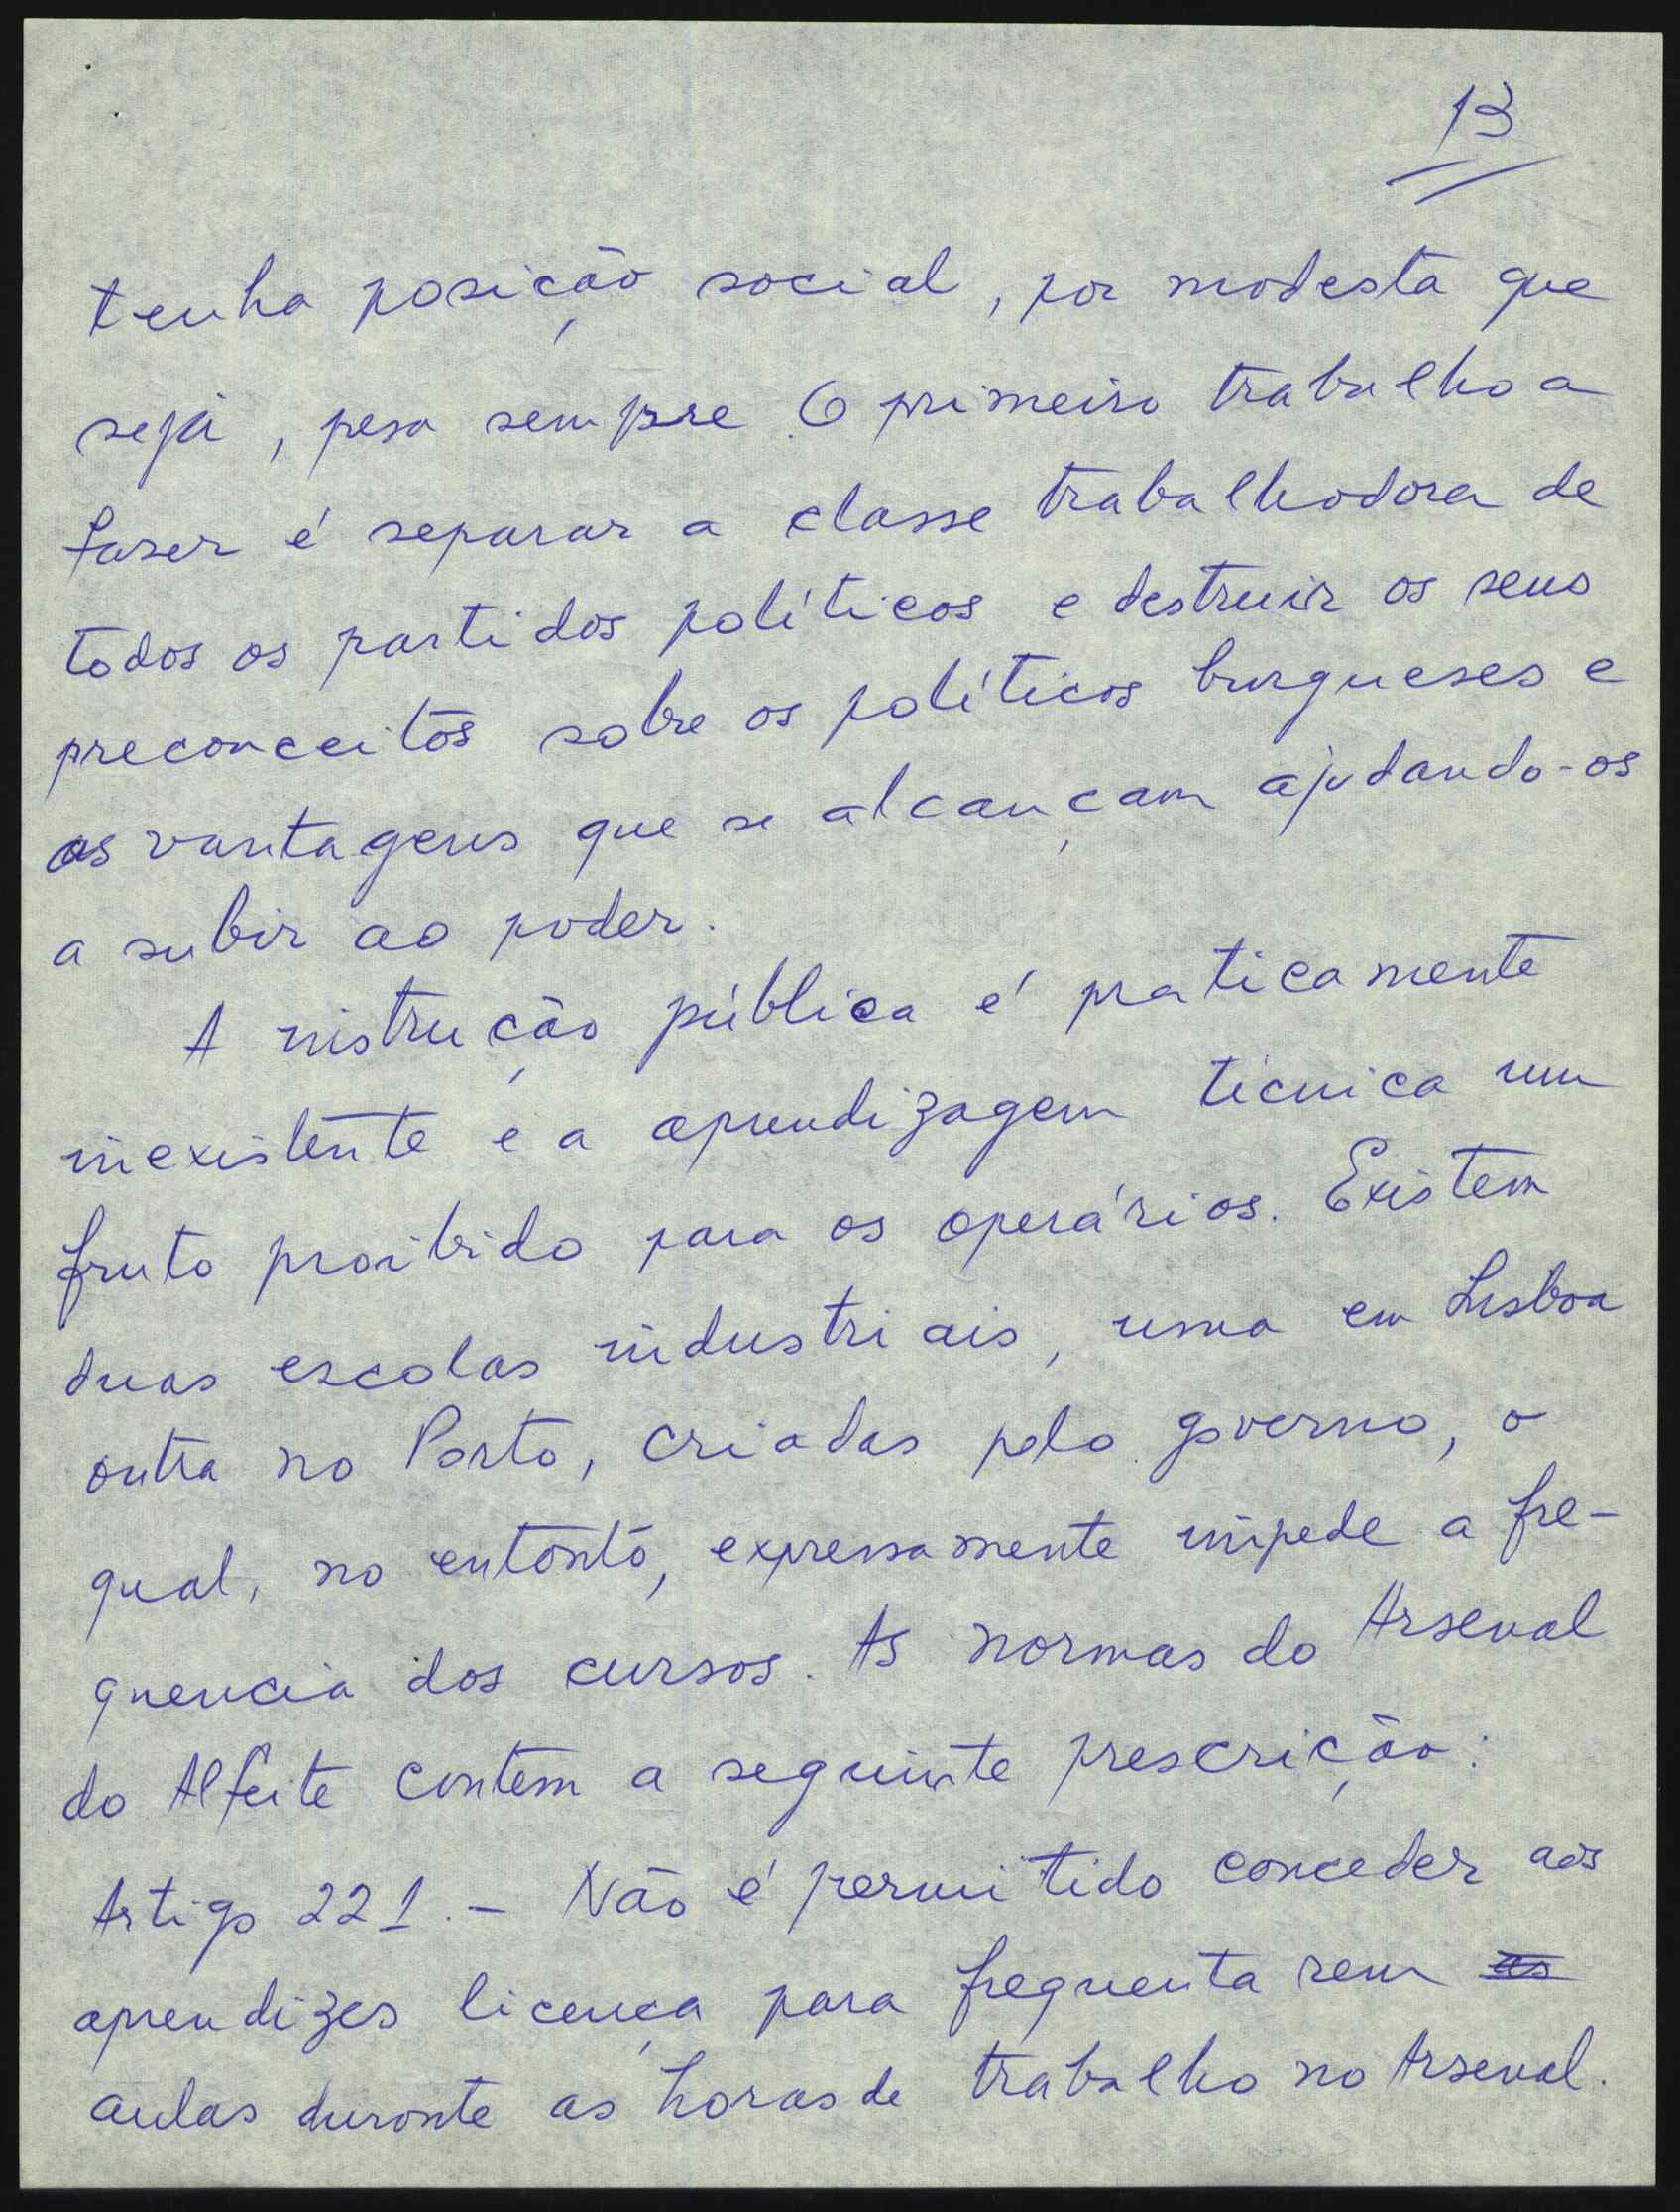 13
tenha posição social, por modesta que
seja, pesa sempre. O primeiro trabalho a
faser é separar a classe trabalhadora de
todos os partidos políticos e destruir os seus
preconceitos sobre os políticos burgueses e
as vantagens que se alcançam ajudando-os
a subir ao poder.
A instrução pública é praticamente
inexistente e a aprendizagem técnica um
fruto proibido para os operários. Existem
duas escolas industriais, uma em Lisboa
outra no Porto, criadas pelo governo, o
qual, no entanto, expressamente impede a fre-
quencia dos cursos. As normas do Arsenal
do Alfeite contem a seguinte prescrição:
Artigo 221. - Não é permitido conceder aos
aprendizes licença para frequentarem as
aulas durante as horas de trabalho no Arsenal.